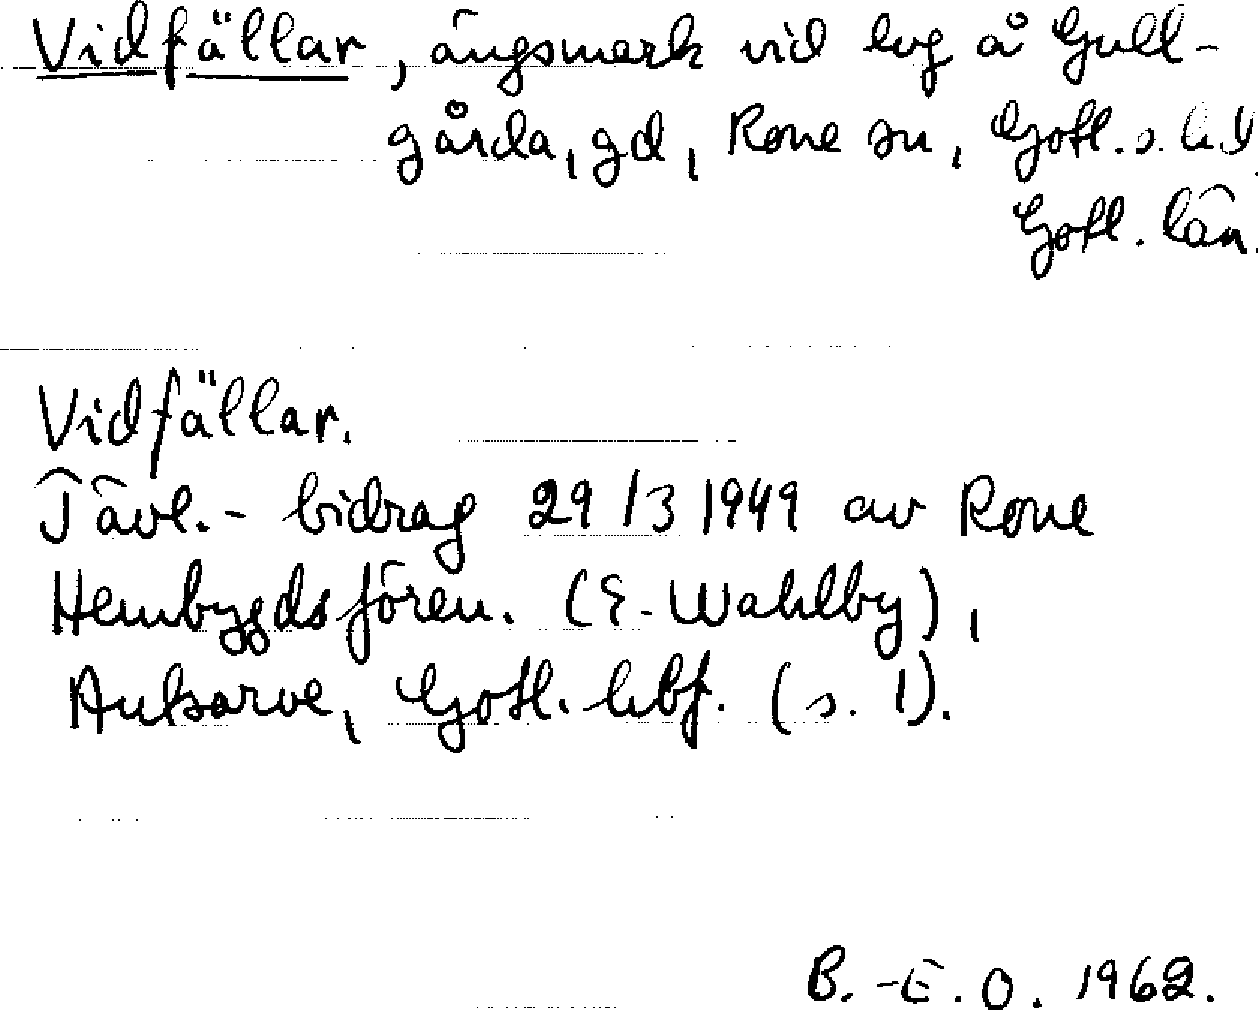 Vidfällar, ängsmark vid lvg å Gull-
gårda, gd, Rone sn, Gotl. s. hd,
Gotl. län.
Vidfällar.
Tävl.- bidrag 29/3 1949 av Rone
Hembygdsfören. (E. Wahlby),
Auksarve, Gotl. hbf. (s. 1).
B.-E. O. 1962.